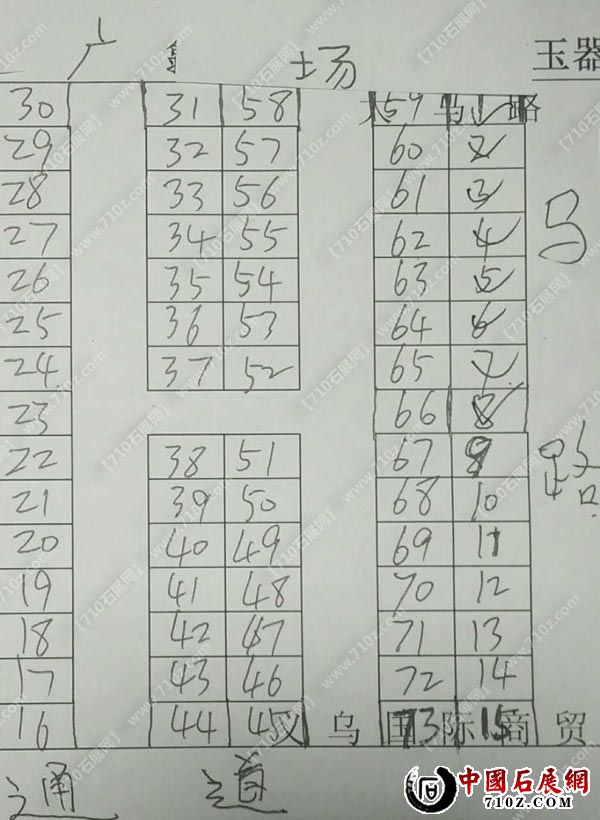 广 场 玉器
30 31 58 59 1
29 32 57 60 2
28 33 56 61 3
27 34 55 62 4
26 35 54 63 5
25 36 53 64 6
24 37 52 65 7
23 66 8
22 38 51 67 9
21 39 50 68 10
20 40 49 69 11
19 41 48 70 12
18 42 47 71 13
17 43 46 72 14
16 44 45 73 15
义乌国际商贸
马
路
通 道
【710石展网】
www.710z.com
中國石展網
710Z.COM